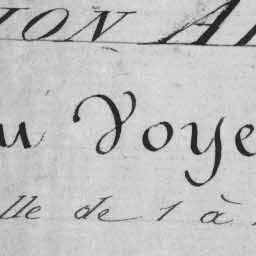 ION A
u Voye
lle de 1 à